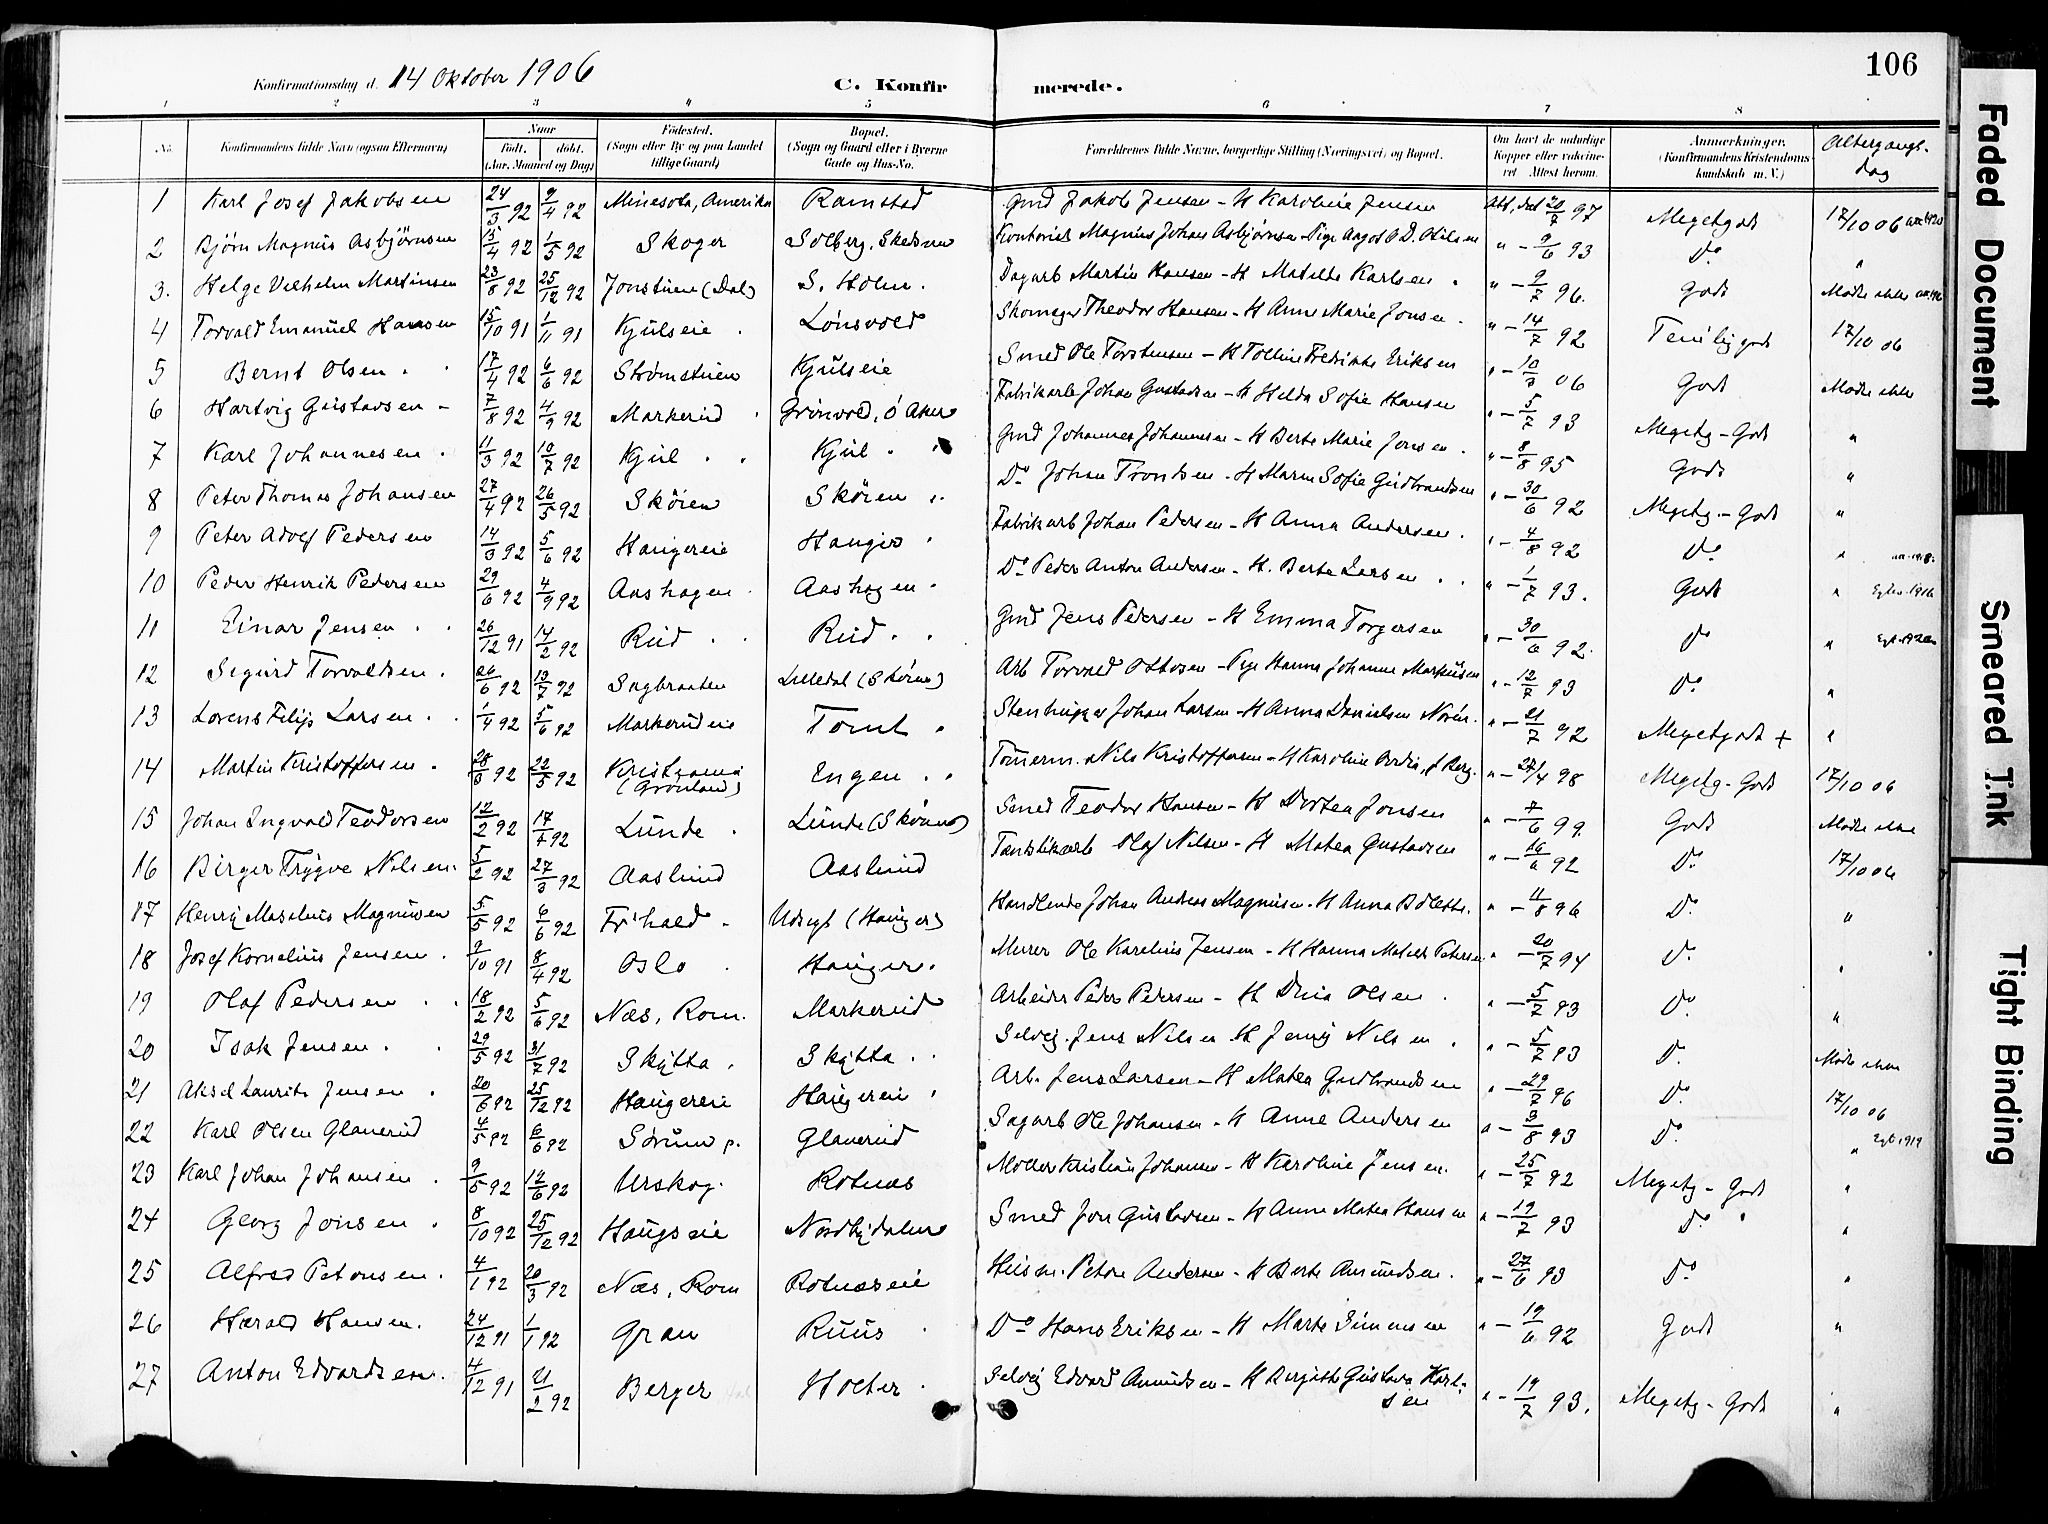 106
Konfirmationsdag d. 14 Oktober 1906 C. Konfirmerede.
1 2 3 4 5 6 7 8
No. Konfirmandens fulde Navn (ogsaa Efternavn) Naar Født. døbt. (Aar, Maaned og Dag) Fødested. (Sogn eller By og paa Landet tillige Gaard) Bopæl. (Sogn og Gaard eller i Byerne Gade og Hus-No. Forældrenes fulde Navne, borgerlige Stilling (Næringsvei) og Bopæl. Om havt de naturlige Kopper eller vaccineret. Attest herom. Anmerkninger. (Konfirmandens Kristendomskundskab m. V.) Altergangsdag
1 Karl Josef Jakobsen 24/3 92 9/4 92 Minesota, Amerika Ramstad Gmd Jakob Jensen - H Karoline Jensen Att, dat 20/7 97 Megetgodt 17/10 06
2 Bjørn Magnus Asbjørnsen 15/4 92 1/5 92 Skoger Solberg, Skedsmo Kontorist Magnus Johan Asbjørnsen - Pige Aagot O. D. Otilsen " - 9/6 93 Do "
3. Helge Vilhelm Martinsen 23/8 92 25/12 92 Jonstuen (Dal) S. Holm. Dagarb Martin Hansen - H Matilde Karlsen " - 9/7 96. Godt Mødte ikke
4 Torvald Emanuel Hansen 15/10 91 1/11 91 Kjulseie Lønsvold Skomager Theodor Hansen - H Anne Marie Jonsen. " - 14/7 92 Temmelig godt 17/10 06
5 Bernt Olsen 17/4 92 6/6 92 Strømstuen Kjulseie Smed Ole Torstensen - H Polline Fredrikke Eriksen " - 10/3 06 Godt Mødte ikke
6 Hartvig Gustavsen - 7/8 92 4/9 92 Markerud Grønvold, Ø Aker Fabrikarb Johan Gustavsen - H Helda Sofie Hansen " - 5/7 93 Megetg - Godt "
7 Karl Johannesen 11/3 92 10/7 92 Kjul Kjul Gmd Johannes Johannesen - H Berte Marie Jonsen. " - 8/8 95 Godt "
8 Peter Thomas Johansen 27/4 92 26/5 92 Skøien Skøien Do Johan Trontsen - H Maren Sofie Gudbrandsen " - 30/6 92 Megetg - Godt "
9 Peter Adolf Pedersen 14/3 92 5/6 92 Haugereie Hauger Fabrikarb Johan Pedersen - H Anna Andersen. " - 4/8 92 Do "
10 Peder Henrik Pedersen 29/6 92 4/9 92 Aashagen Aashagen Do Peder Anton Andersen - H. Berte Larsen " - 1/7 93. Godt "
11 Einar Jensen 26/12 91 14/2 92 Rud Rud Gmd Jens Pedersen - H Emma Torgersen " - 30/6 92. Do "
12 Sigurd Torvaldsen. 26/6 92 13/7 92 Sagbraaten Lilledal (Skøien) Arb Torvald Ottosen - Pige Hanna Johanne Markussen " - 12/7 93 Do "
13 Lorens Filip Larsen 1/4 92 5/6 92 Markerudeie Tomt Stenhugger Johan Larsen - H Anna Danielsen " - 21/7 92 Megetgodt + "
14 Martin Kristoffersen. 28/3 92 22/5 92 Kristiania (Grønland) Engen Tømerm. Nils Kristoffersen - H Karoline " - 27/4 98 Megetg - Godt 17/10 06
15 Johan Ingvald Teodorsen 12/2 92 17/4 92 Lunde Lunde (Skøien) Smed Teodor Hansen - H Dortea Jonsen " - 7/6 99 Godt Mødte ikke
16 Birger Trygve Nilsen. 5/2 92 27/3 92 Aaslund Aaslund Olaf Nilsen - H Matea Gustavsen " - 16/6 92 Do 17/10 06
17 Henry Maselius Magnussen 5/5 92 6/6 92 Fr'hald Udsigt (Hauger) Handlende Johan Andreas Magnussen - H Anna " - 11/8 96 Do "
18 Josef Kornelius Jensen 9/10 91 8/4 92 Oslo Hauger. Murer Ole Karelius Jensen - H Hanna Matilde Petersen " - 20/7 94 Do "
19 Olaf Pedersen 18/2 92 5/6 92 Næs, Rom. Markerud Arbeider Peder Pedersen - H Dina Olsen " - 5/7 93 Do "
20 Isak Jensen 29/5 92 31/7 92 Skytta Skytta Selveig. Jens Nilsen - H Jenny Nilsen " - 5/7 93 Do Mødte ikke
21 Aksel Laurits Jensen 20/6 92 25/12 92 Haugereie Haugereie Arb. Jens Larsen - H Matea Gudbrandsen " - 29/7 96 Do 17/10 06
22 Karl Olsen Glanerud 4/5 92 6/6 92 Sørum p. Glanerud Sagarb Ole Johansen - H Anne Andersen " - 3/8 93 Do " Egb. 1919
23 Karl Johan Johansen 9/5 92 12/6 92 Urskog Rotnæs Møller Kristian Johansen - H Karoline Jensen. " - 25/7 92 Megetg - Godt "
24 Georg Jonsen 8/10 92 25/12 92 Haugseie Nordbydalen Smed Jon Gustavsen - H Anne Matea Hansen " - 19/7 93 Do "
25 Alfred Petersen. 4/1 92 20/3 92 Næs, Rom Rotnæseie Husm. Peter Andersen - H Berte Amundsen. " - 27/6 93 Do "
26 Harald Hansen. 24/12 91 1/1 92 Gran Ruus Do Hans Eriksen - H Marte Simensen " - 19/6 92 Godt "
27 Anton Edvardsen. 4/12 91 21/2 92 Berger Holter Selveig Edvard Amundsen - H Bergitte Gustava Karlsen " - 19/7 93. Megetg - Godt "
Faded Document
Smeared Ink
Tight Binding